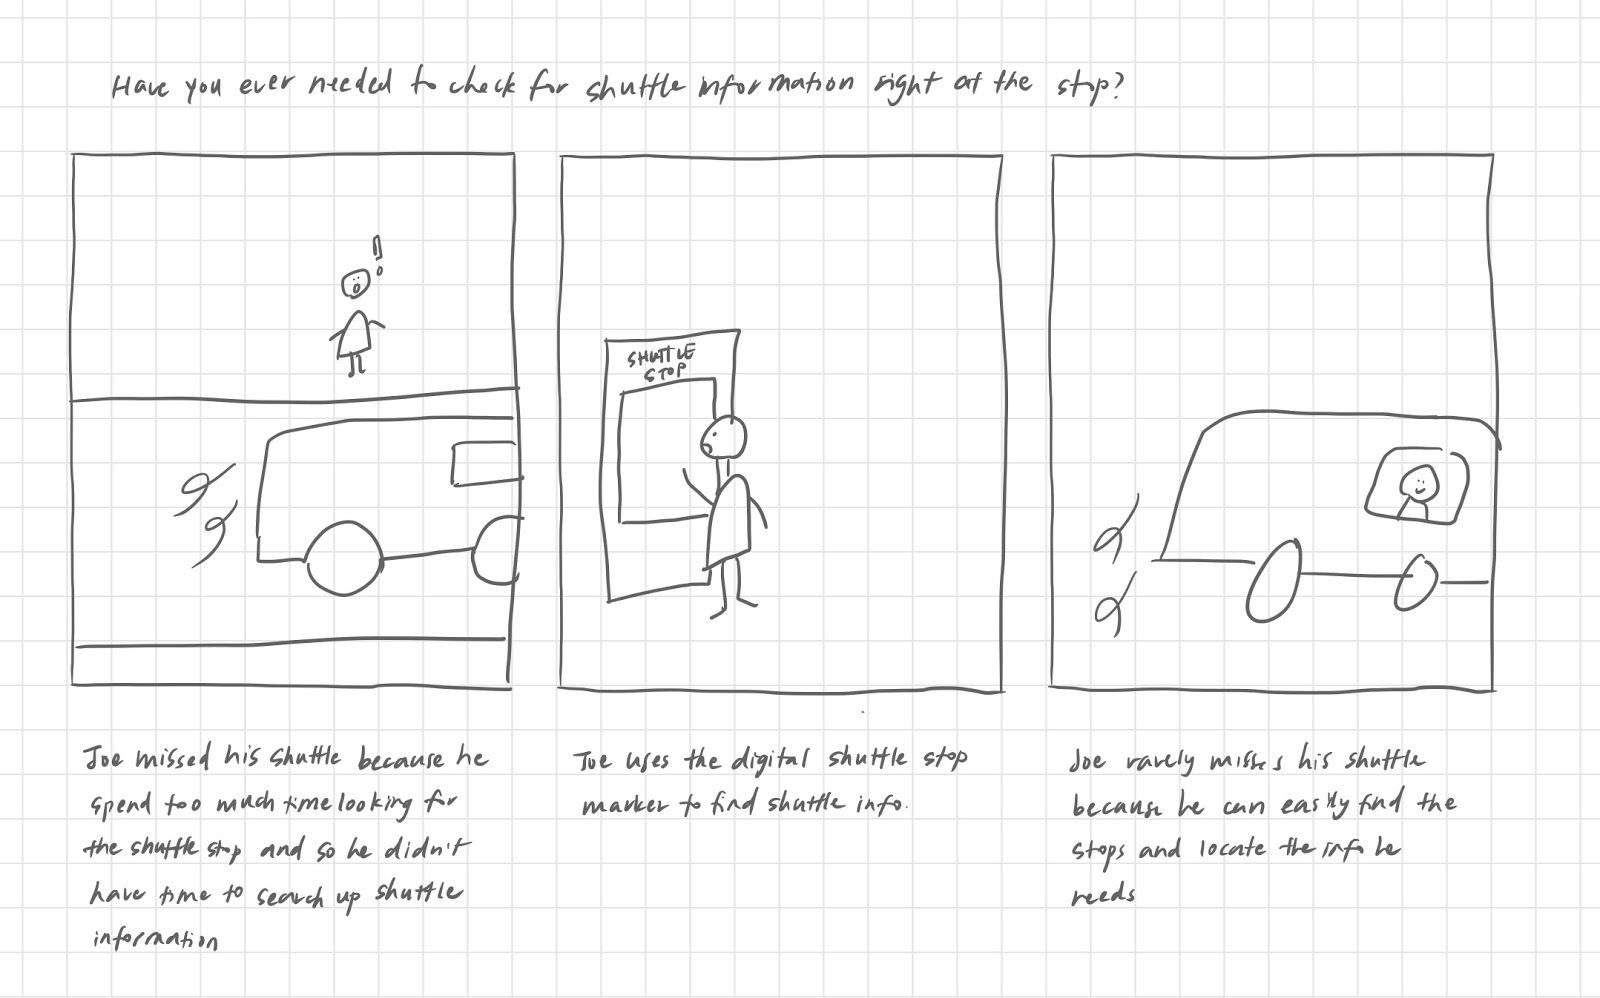 Have you ever needed to check for shuttle information right at the stop?
!
SHUTTLE
STOP
Joe missed his shuttle because he
spend too much time looking for
the shuttle stop and so he didn't
have time to search up shuttle
information
Joe uses the digital shuttle stop
marker to find shuttle info.
Joe rarely misses his shuttle
because he can easily find the
stops and locate the info he
needs